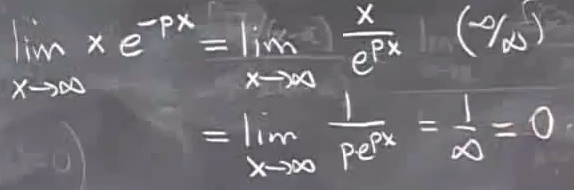 lim x→∞ x e^{-px} = lim x→∞ x/e^{px} (∞/∞)
= lim x→∞ 1/pe^{px} = 1/∞ = 0.